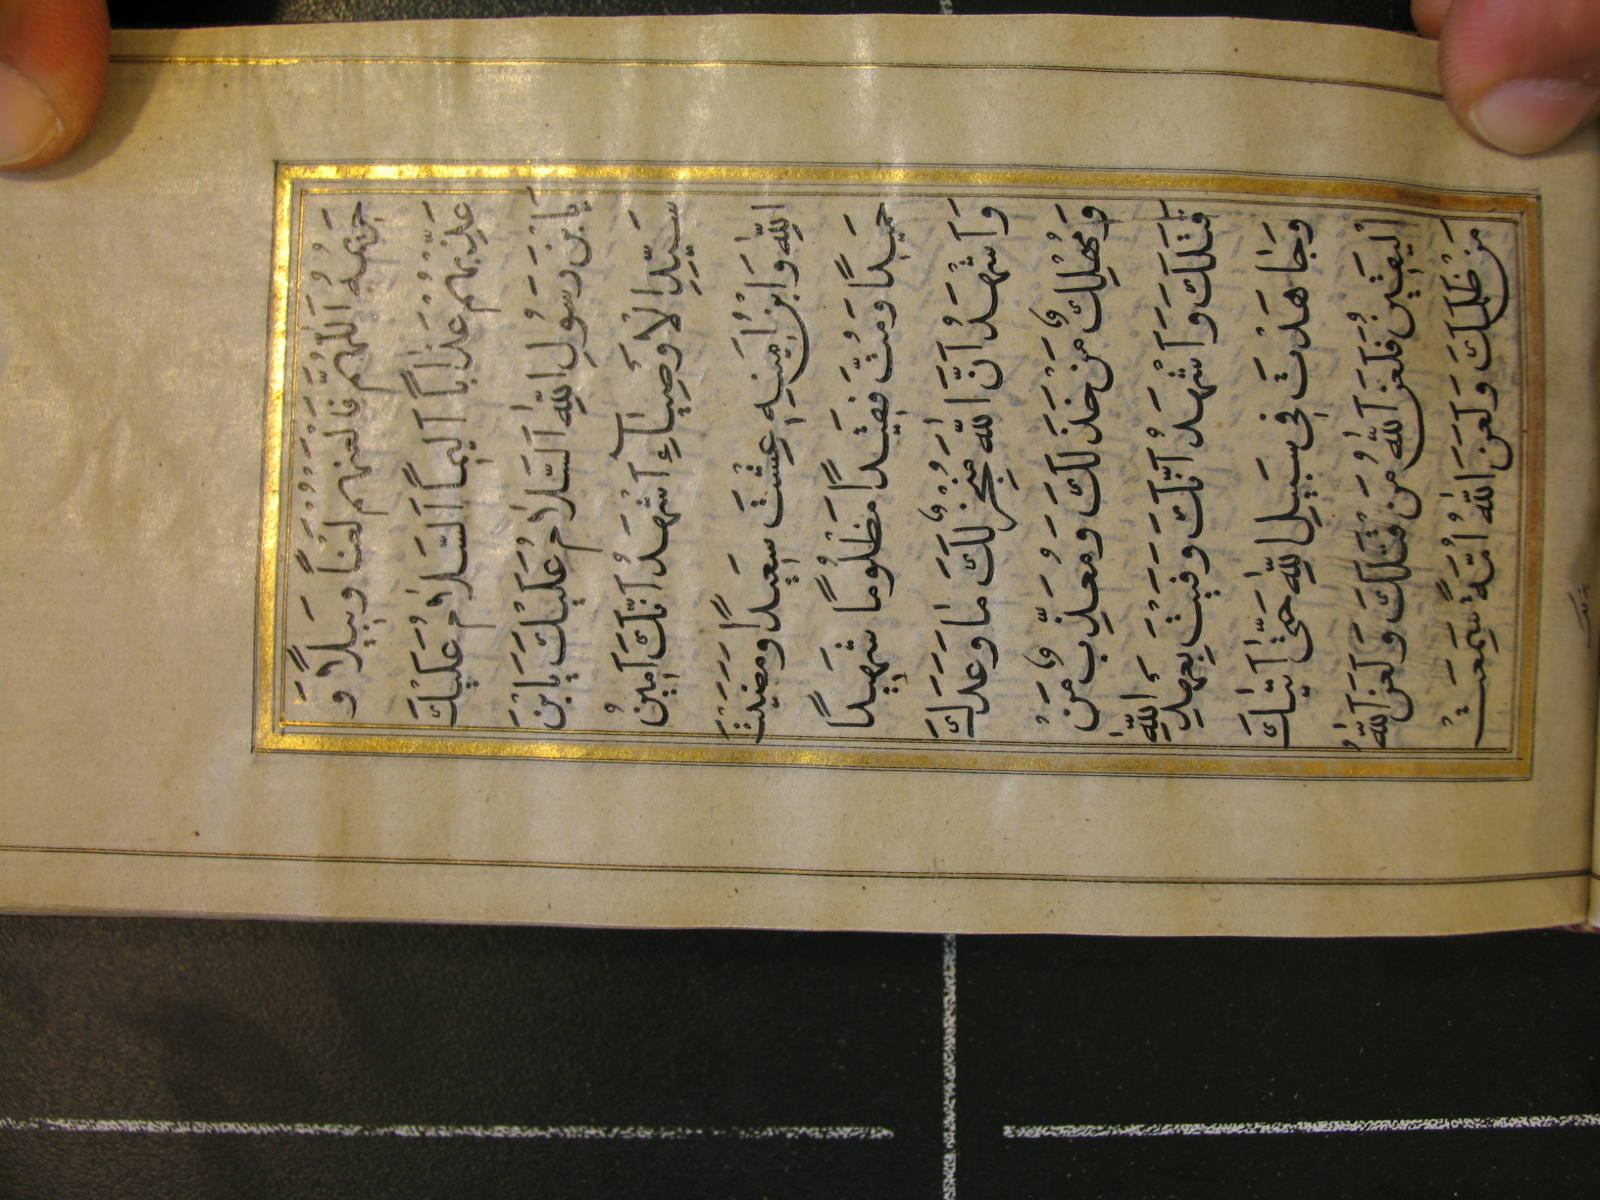 حَرِيمُهُ اَللّٰهُمَّ فَالْعَنْهُمْ لَعْنًا وَبِيلًا وَ
عَذِّبْهُمْ عَذَابًا اَلِيمًا اَلسَّلَامُ عَلَيْكَ
يَابْنَ رَسُولِ اللّٰهِ اَلسَّلَامُ عَلَيْكَ يَابْنَ
سَيِّدِ الْاَوْصِيَآءِ اَشْهَدُ اَنَّكَ اَمِينُ
اللّٰهِ وَابْنُ اَمِينِهِ عِشْتَ سَعِيدًا وَمَضَيْتَ
حَمِيدًا وَمُتَّ فَقِيدًا مَظْلُومًا شَهِيدًا
وَاَشْهَدُ اَنَّ اللّٰهَ مُنْجِزٌ لَكَ مَا وَعَدَكَ
وَمُهْلِكٌ مَنْ خَذَلَكَ وَمُعَذِّبٌ مَنْ
قَتَلَكَ وَاَشْهَدُ اَنَّكَ وَفَيْتَ بِعَهْدِ اللّٰهِ
وَجَاهَدْتَ فِي سَبِيلِ اللّٰهِ حَتّٰى اَتٰيكَ
الْيَقِينُ فَلَعَنَ اللّٰهُ مَنْ قَتَلَكَ وَلَعَنَ اللّٰهُ
مَنْ ظَلَمَكَ وَلَعَنَ اللّٰهُ اُمَّةً سَمِعَتْ